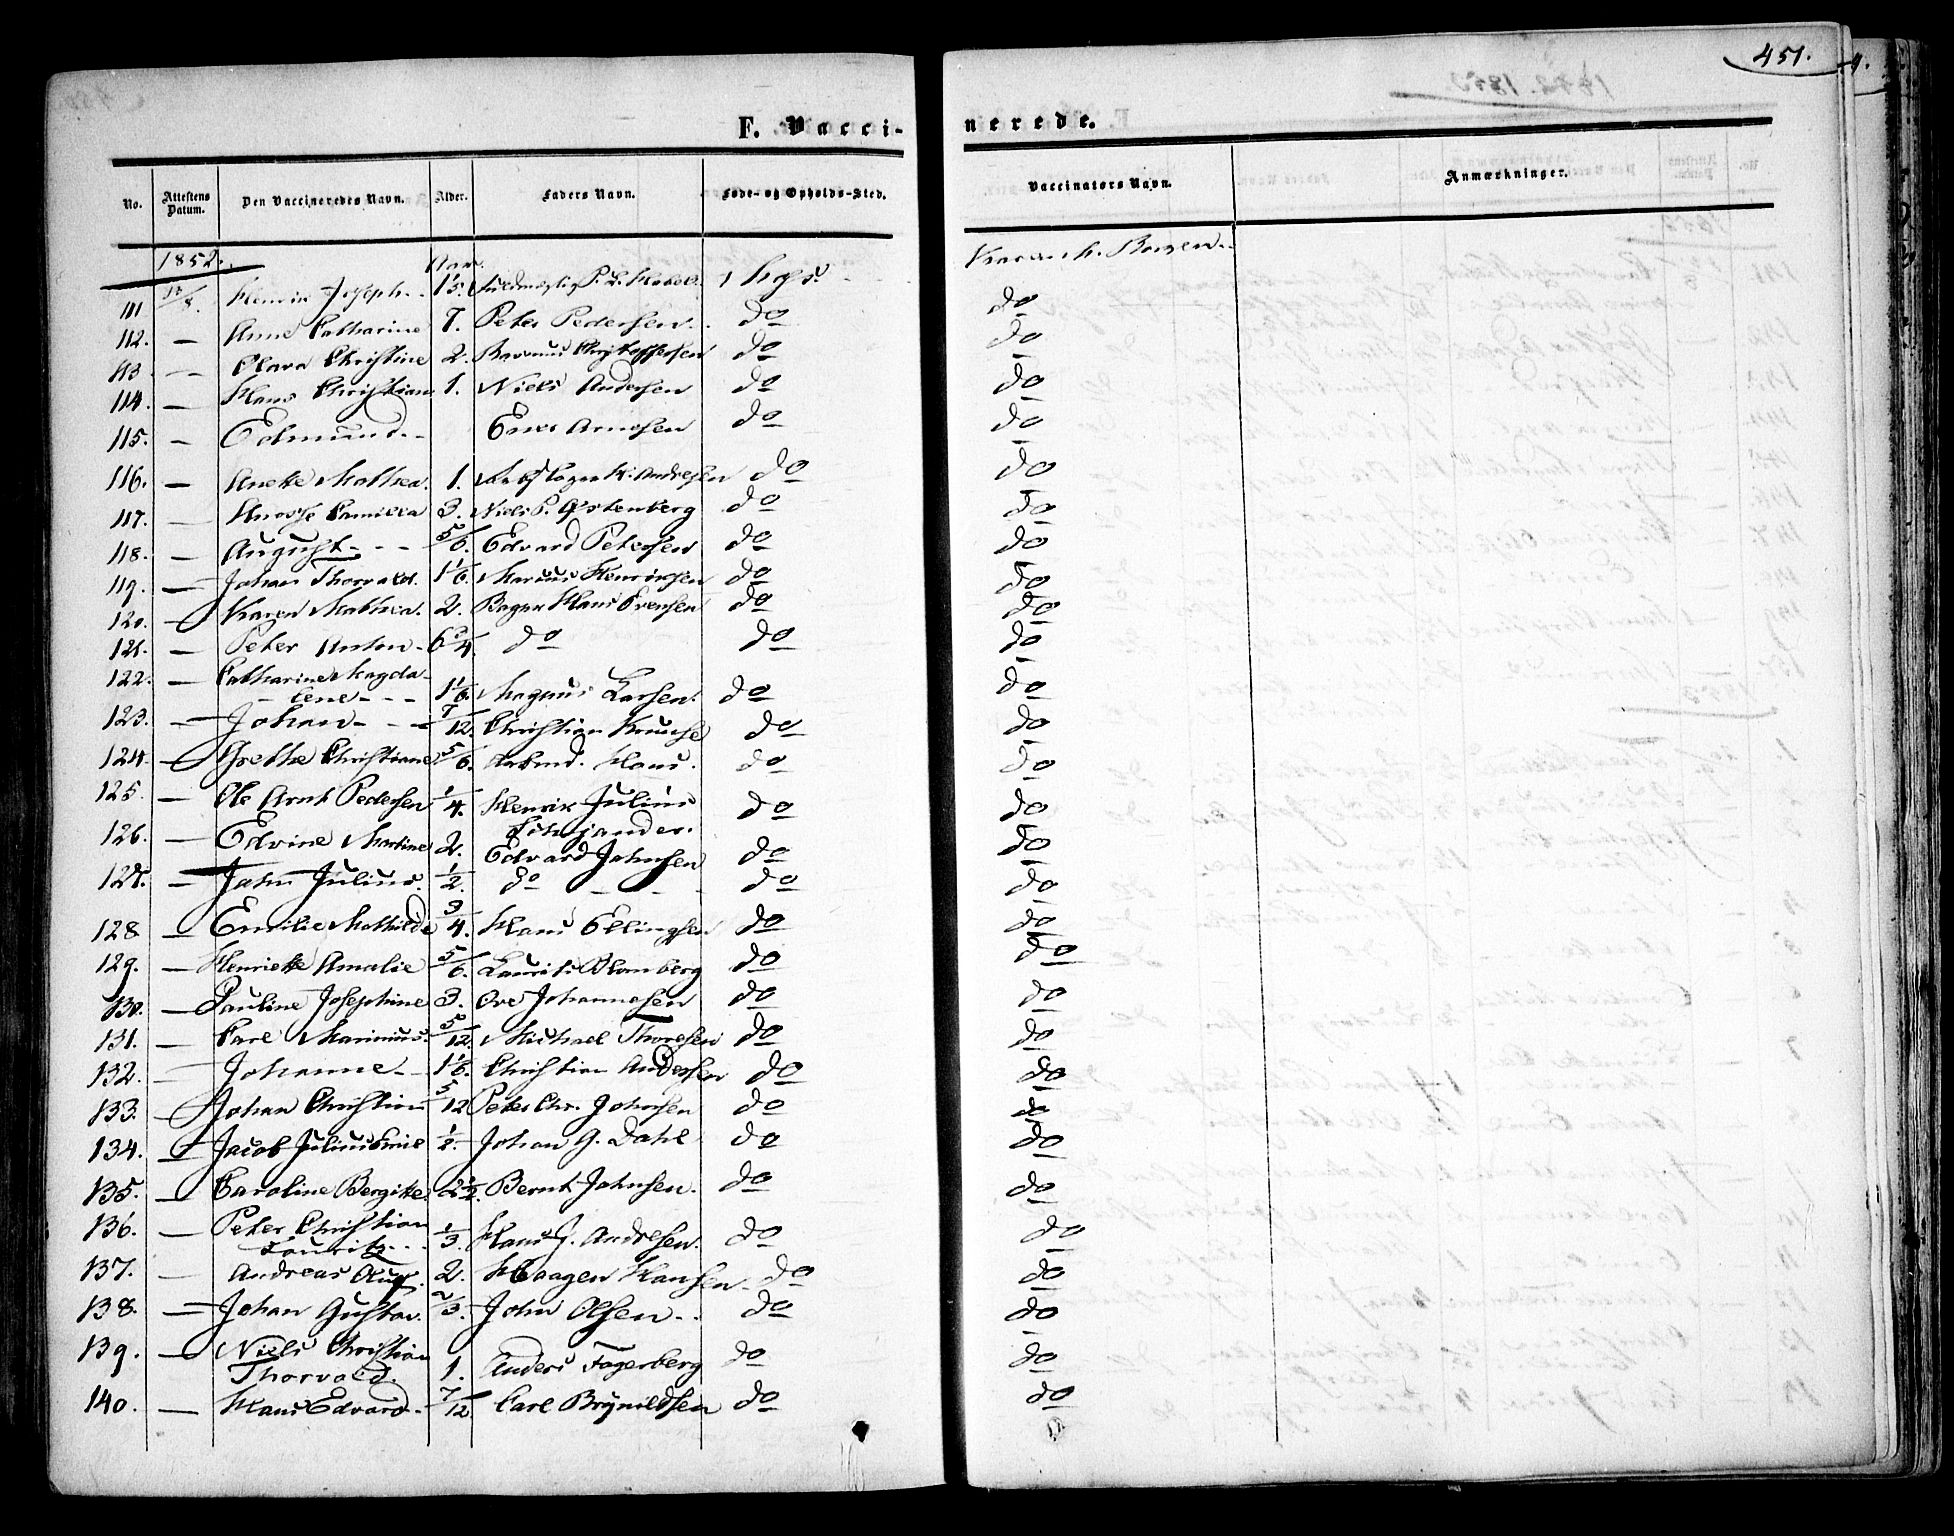 451.
F. Vacci-
nerede.
No. Attestens Datum. Den Vaccineredes Navn. Alder. Faders Navn. Føde- og Opholds-Sted. Vaccinators Navn. Anmærkninger.
1852. Aar.
111 Henrik Joseph. 15. P. L.
112. — Anne Catharine 7. Peter Pedersen. do do
113 — Clara Christine 2. Christoffersen do do
114. — Hans Christian 1. Niels Andersen do do
115. — Edmund. Arnesen do do
116. — Anette Mathea. 1. H. Andresen do do
117. — Camilla 3. Niels P. Østenberg do do
118. — August 5/6. Edvard Petersen do do
119. — Johan Thorvald. 1 1/6. Marius Henriksen do do
120. — Karen Mathea. 2. Bager Hans Evensen do do
121. — Peter Anton do do do
122. — Catharine Magda-
lene 1 1/6. Magnus Larsen. do do
123. — Johan 7/12. Christian do do
124. — Grethe Christiane 5/6. Hans. do do
125. — Ole Arnt Pedersen 1/4. Henrik Julius do do
126. — Edvine Martine 2. Edvard Johnsen do do
127. — John Julius. 1/2. do do do
128 — Emilie Mathilde 3/4. Hans Ellingsen do do
129. — Henriette Amalie 5/6. Laurits Blomberg do do
130. — Pauline Josephine 3. Ove Johannesen do do
131. — Carl Marinius. 5/12. Michael Thoresen do do
132. — Johanne 1 1/6. Christian Andersen do do
133. — Johan Christian 5/12 Peter Chr. Johnsen do do
134. — Jacob Julius Emil 1/2. Johan G. Dahl do do
135. — Caroline Bergitte. 2 1/2. Bernt Johnsen. do do
136. — Peter Christian
Lauritz 1/3. Hans J. Andresen. do do
137. — Andreas Olus. 2. Haagen Hansen do do
138. — Johan Gustav. 2/3. John Olsen do do
139. — Niels Christian
Thorvald. 1. Anders Fagerberg do do
140. — Hans Edvard 7/12 Carl Brynildsen do do